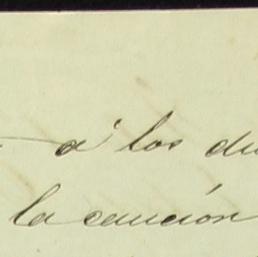 á los du
la caución